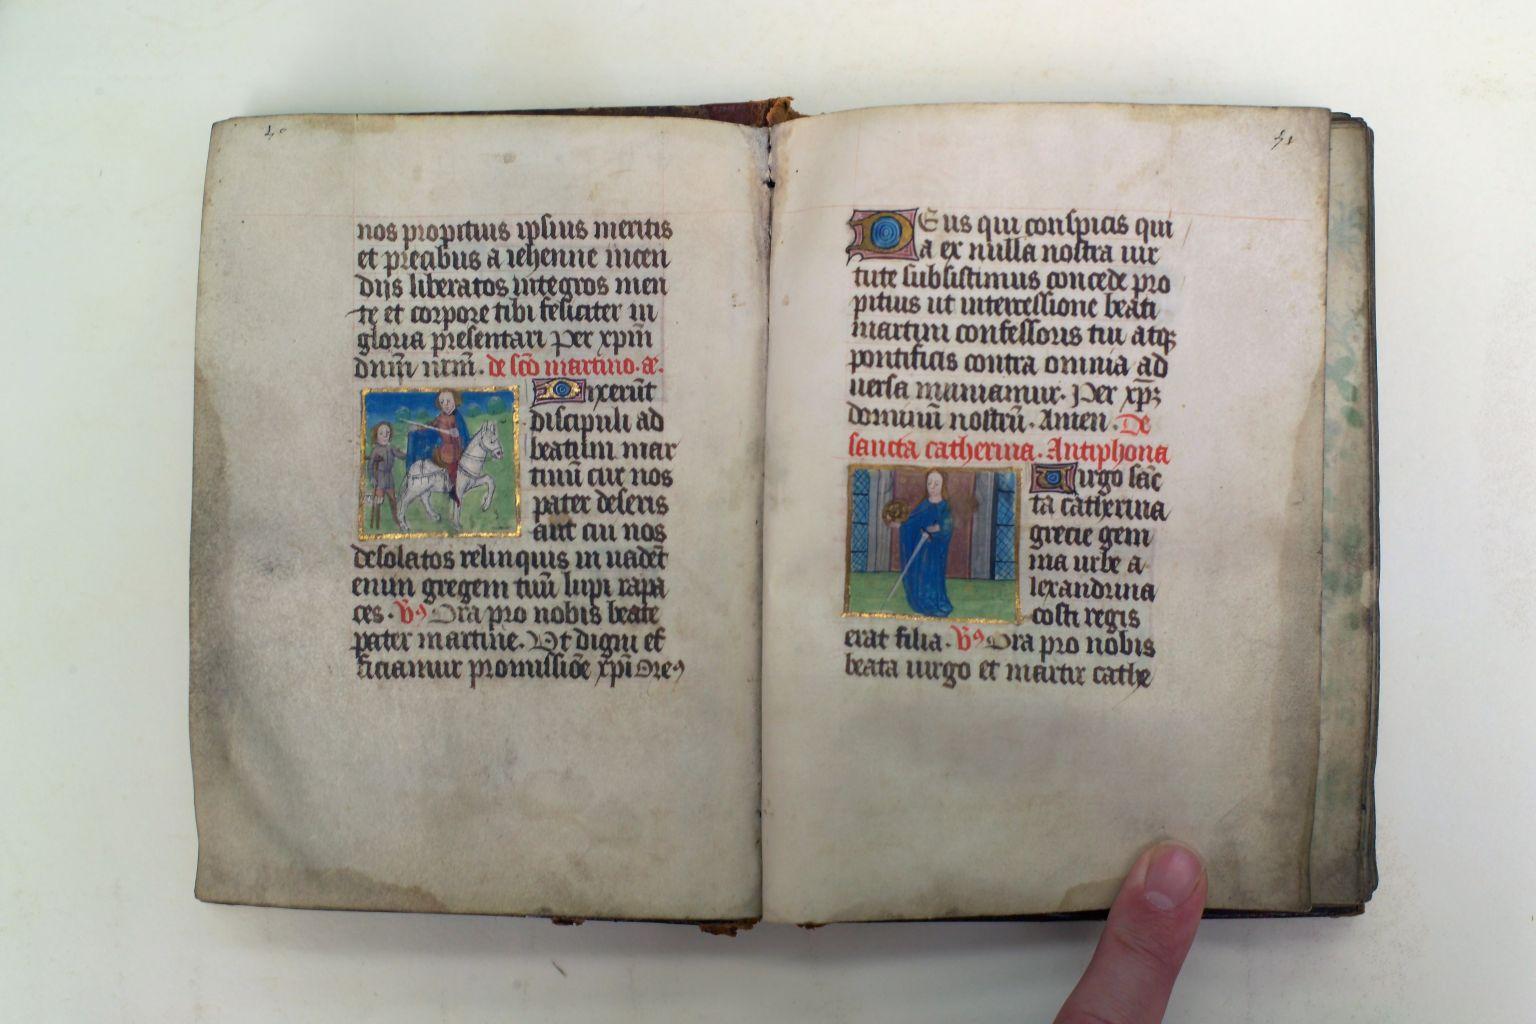 40
nos propitius ipsius meritis
et precibus a iehenne incen
diis liberatos integros men
te et corpore tibi feliciter in
gloria presentari Per xp̄m̄
dn̄m̄ nr̄m̄. de sc̄o martino. a͞.
Dixerūt
discipuli ad
beatum mar
tinū cur nos
pater deseris
aut cui nos
desolatos relinquis inuadēt
enim gregem tuū lupi rapa
ces. V̄ꝰ Ora pro nobis beate
pater martine. Vt digni ef
ficiamur promissiōe xp̄i Oreꝰ
41
Deus qui conspicis qui
a ex nulla nostra uir
tute subsistimus concede pro
pitius ut intercessione beati
martini confessoris tui atqꝫ
pontificis contra omnia ad
uersa muniamur. Per xp̄ꝫ
dominū nostrū. Amen. De
sancta catherina. Antiphona
Uirgo sāc
ta catherina
grecie gem
ma urbe a
lexandrina
costi regis
erat filia. V̄ꝰ Ora pro nobis
beata uirgo et martir cathe